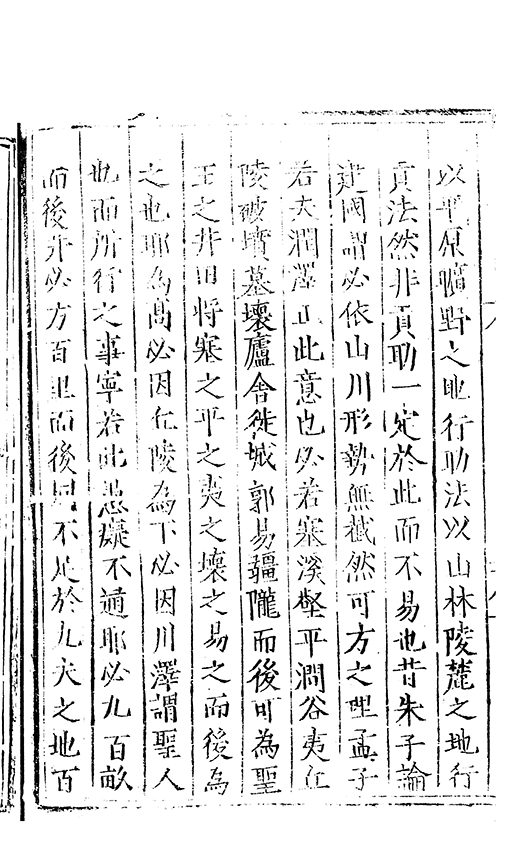 以平原曠野之地行助法以山林陵麓之地行
貢法然非貢助一定於此而不易也昔朱子論
建國謂必依山川形勢無截然可方之理孟子
若夫潤澤正此意也必若塞溪壑平澗谷夷丘
陵破墳墓壞廬舍徙城郭易疆隴而後可為聖
王之井田將塞之平之夷之壞之易之而後為
之也耶為高必因丘陵為下必因川澤謂聖人
也而所行之事寧若此愚癡不通耶必九百畝
而後井必方百里而後同不足於九夫之地百